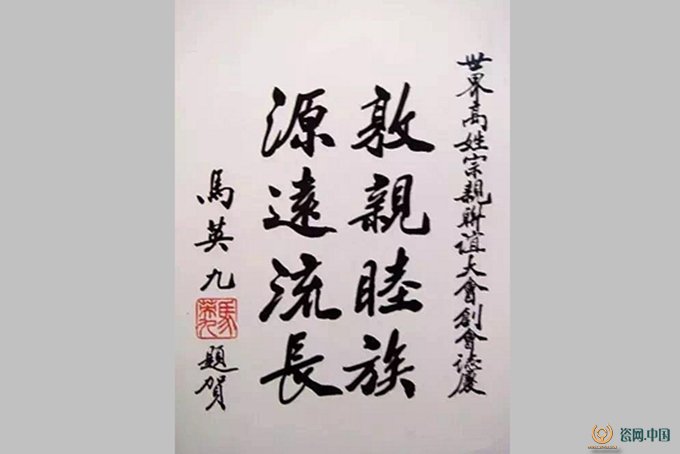 世界高姓宗親聯誼大會創會誌慶
敦親睦族
源遠流長
馬英九
馬英九
題賀
瓷网.中国